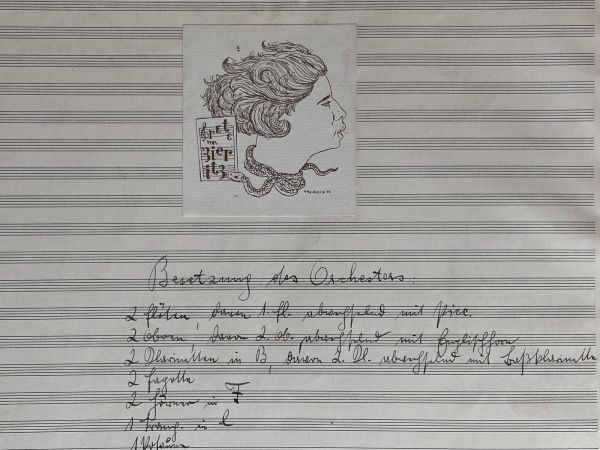 Grete
von
Zier
itz
Besetzung des Orchesters:
2 Flöten, davon 1. Fl. abwechselnd mit Picc.
2 Oboen, davon 2. Ob. abwechselnd mit Englischhorn
2 Klarinetten in B, davon 2. Kl. abwechselnd mit Baßklarinette
2 Fagotte
2 Hörner in F
1 Tromp. in C
1 Posaune